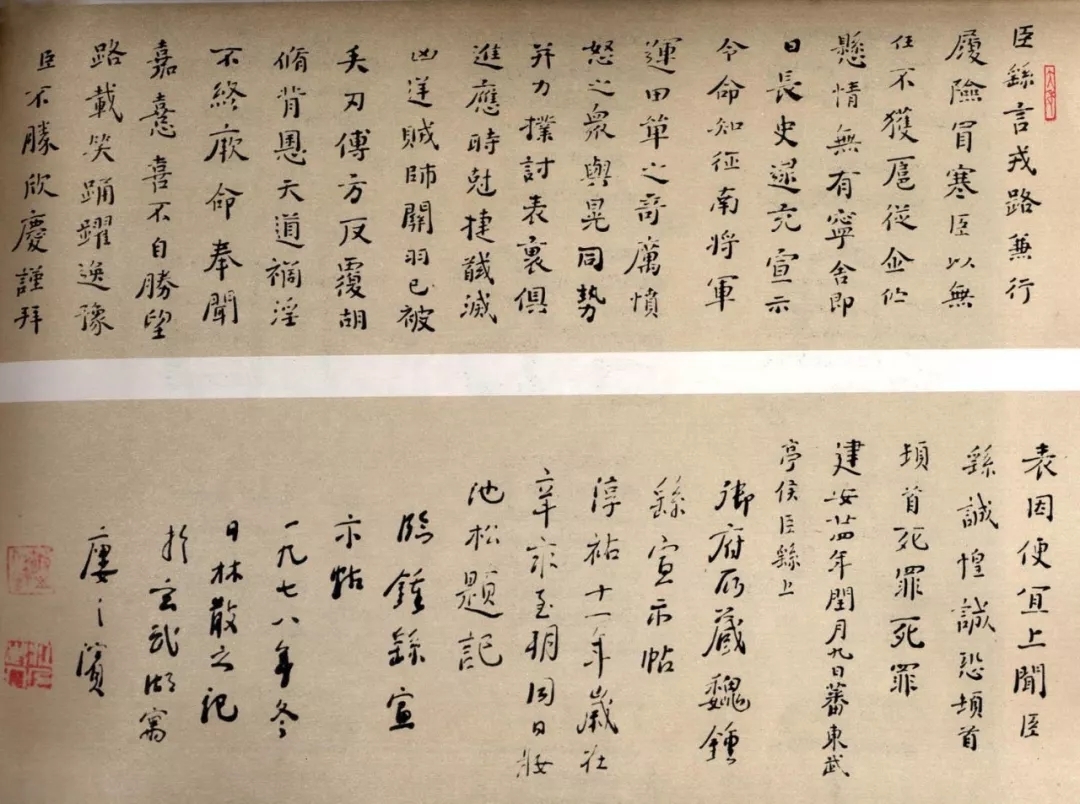 臣繇言戎路兼行
履險冒寒臣以無
任不獲扈從企佇
懸情無有寧舍即
日長史逯充宣示
令命知征南將軍
運田單之奇厲憤
怒之眾與晃同勢
并力撲討表裏俱
進應時尅捷馘滅
凶逆賊帥關羽已被
矢刃傅方反覆胡
脩背恩天道禍淫
不終厥命奉聞
嘉憙喜不自勝望
路載笑踊躍逸豫
臣不勝欣慶謹拜
表因便宜上聞臣
繇誠惶誠恐頓首
頓首死罪死罪
建安廿四年閏月九日蕃東武
亭侯臣繇上
御府所藏魏鍾
繇宣示帖
淳祐十一年歲在
辛亥至
池松題記
臨鍾繇宣
示帖
一九七八年冬
日林散之記
於玄武湖寓
廔之濱